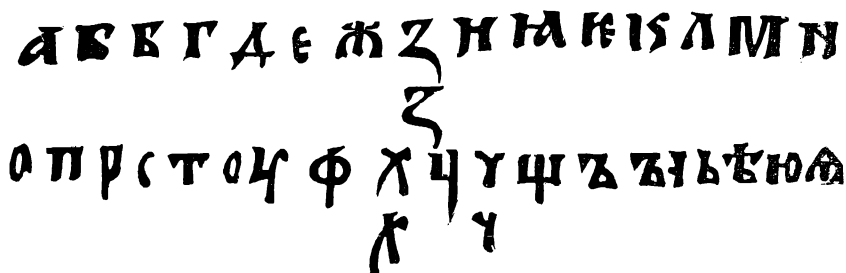 А Б В Г Д Е Ж Ꙁ Н Ꙗ Ѥ К Л М N
Ꙁ
О П Р С Т ОУ Ф Х Ц Ч Ш Ъ ЪІ Ь Ѣ Ю Ѧ
Х Ч